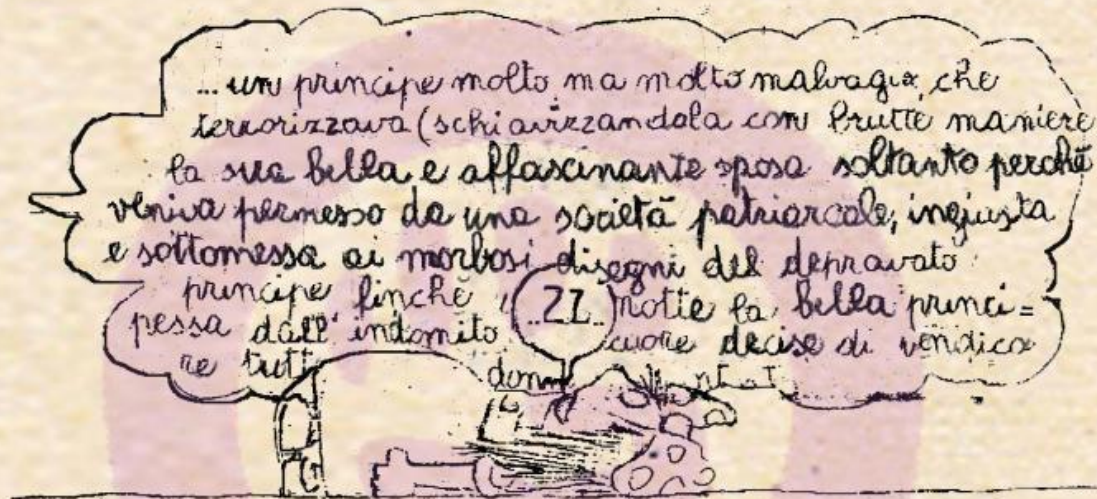 ... un principe molto ma molto malvagio, che
terrorizzava (schiavizzandola con brutte maniere
la sua bella e affascinante sposa soltanto perchè
veniva permesso da una società patriarcale, ingiusta
e sottomessa ai morbosi disegni del depravato
principe finchè ..ZZ.. notte la bella princi=
pessa dall' indomito cuore decise di vendica
re tutt